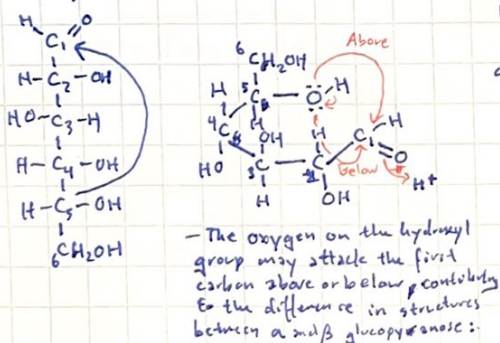 H O
C1
H-C2-OH
HO-C3-H
H-C4-OH
H-C5-OH
6CH2OH
Above
6
CH2OH
H 5 C O H
4 C H OH C1 H
HO 3C C O
below H+
H OH
- The oxygen on the hydroxyl
group may attack the first
carbon above or below, contributing
to the difference in structures
between α and β glucopyranose:.